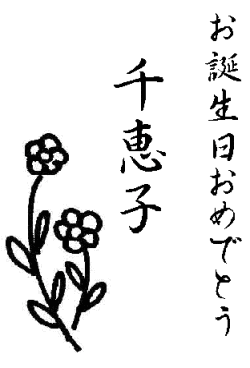 お誕生日おめでとう
千恵子